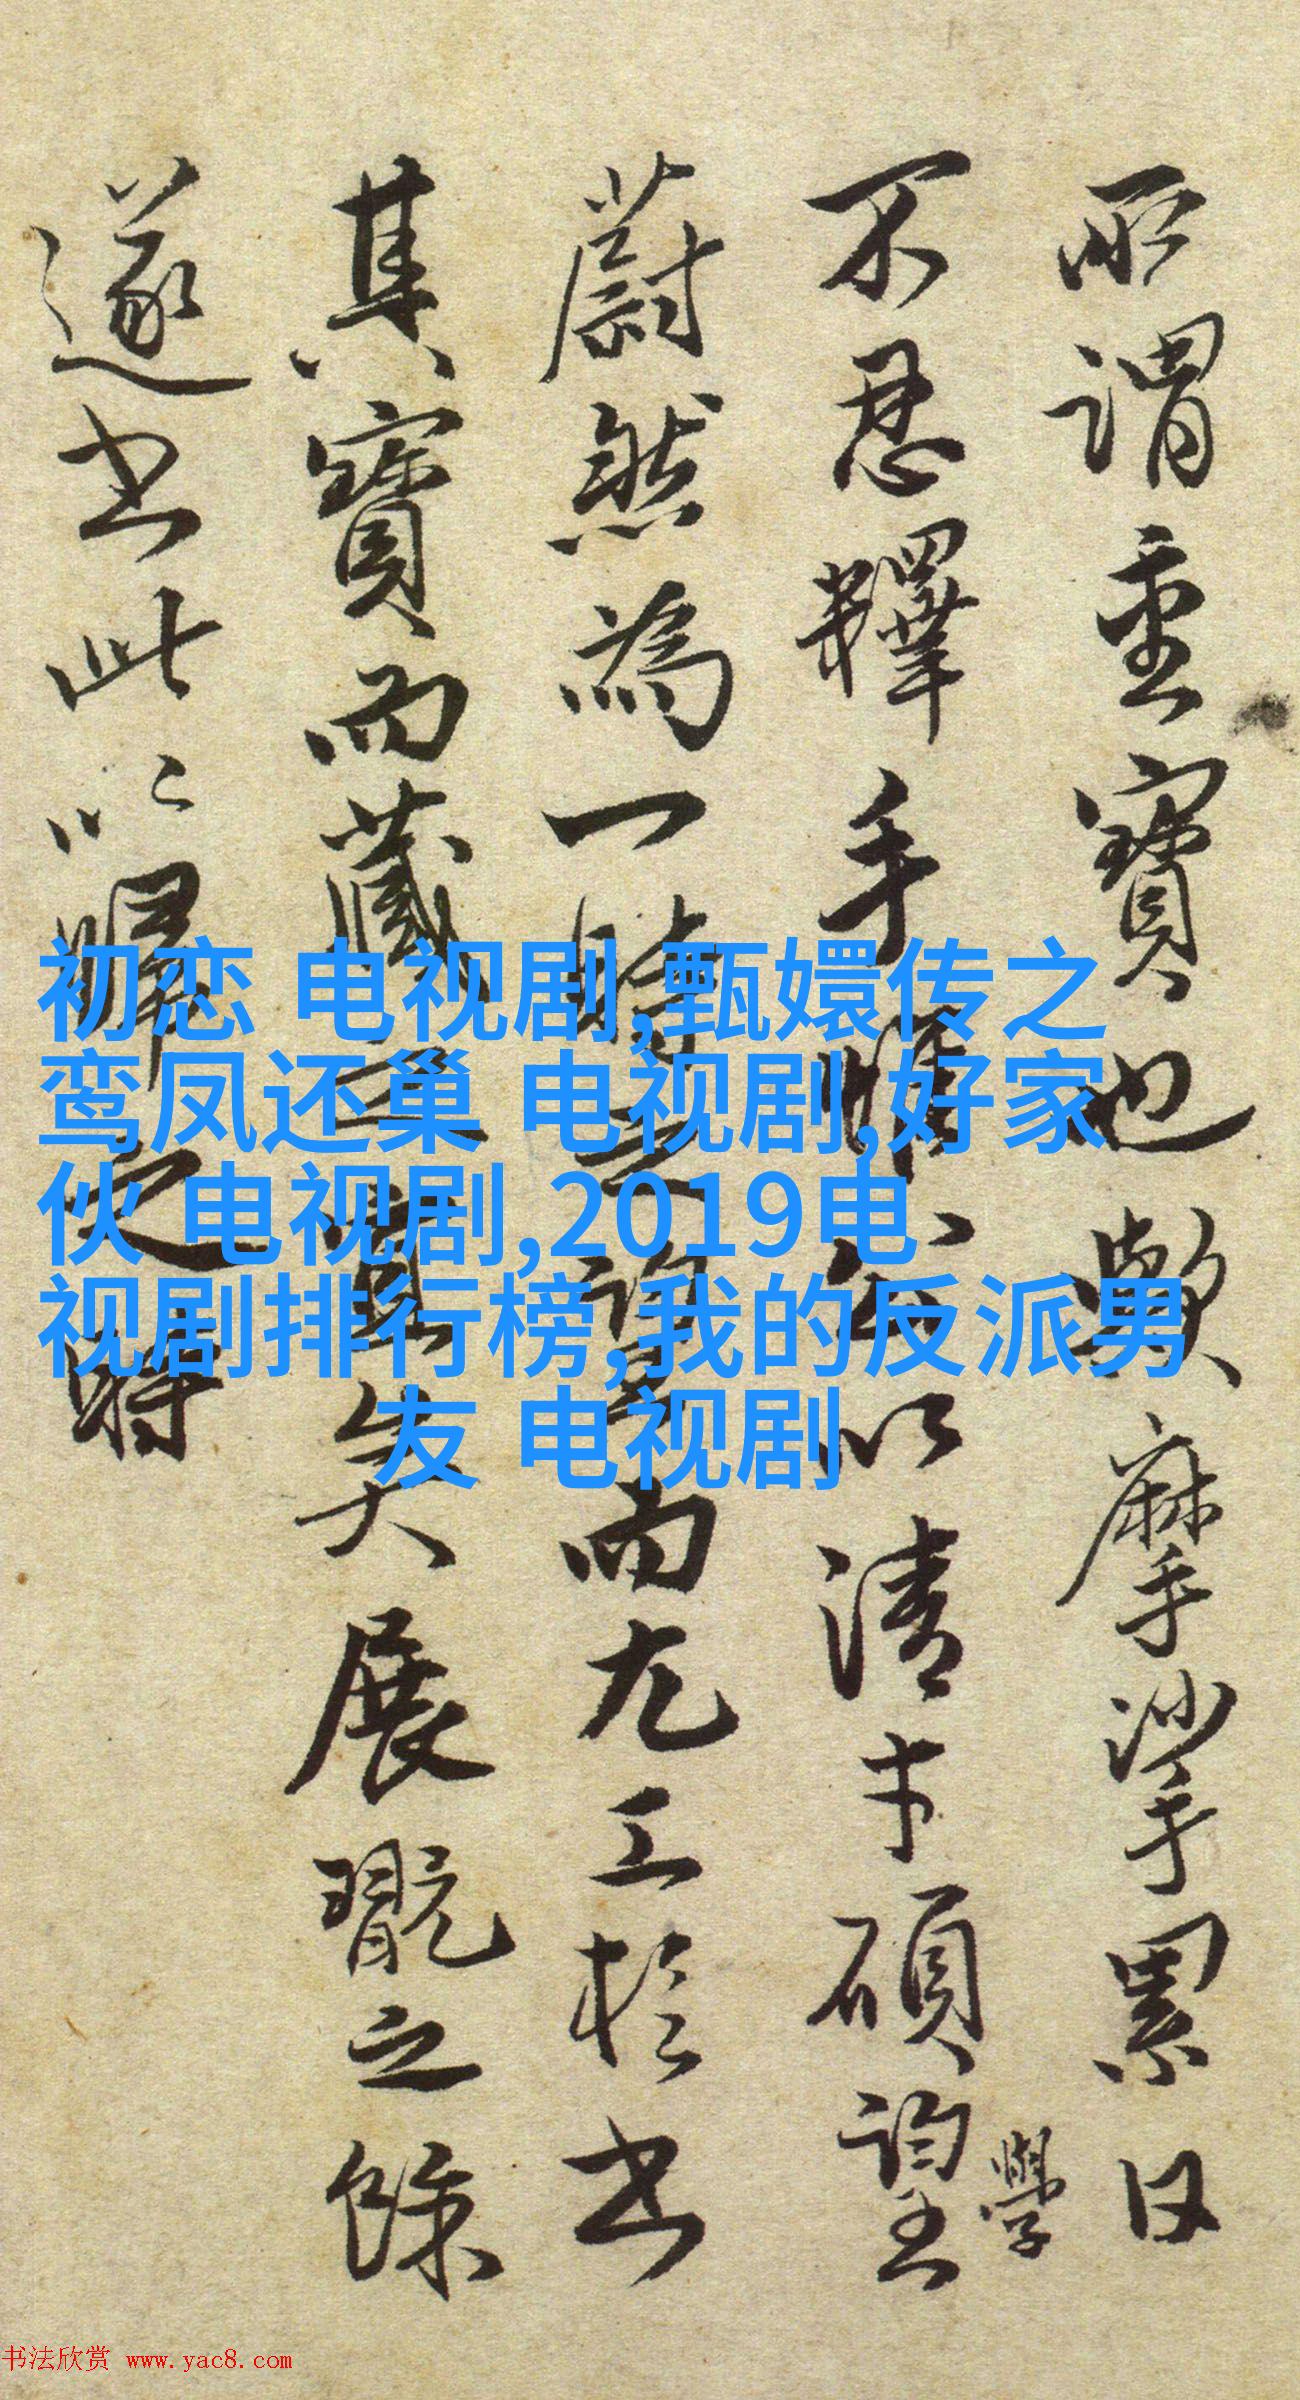 所謂重寶也數摩挲累日
不忍釋手惟公以清才碩望
學
蔚然為一時之望而尤工於書
其寶而藏之宜矣展翫之餘
遂書此以歸之時
初恋 电视剧,甄嬛传之
鸾凤还巢 电视剧,好家
伙 电视剧,2019电
视剧排行榜,我的反派男
友 电视剧
书法欣赏 www.yac8.com